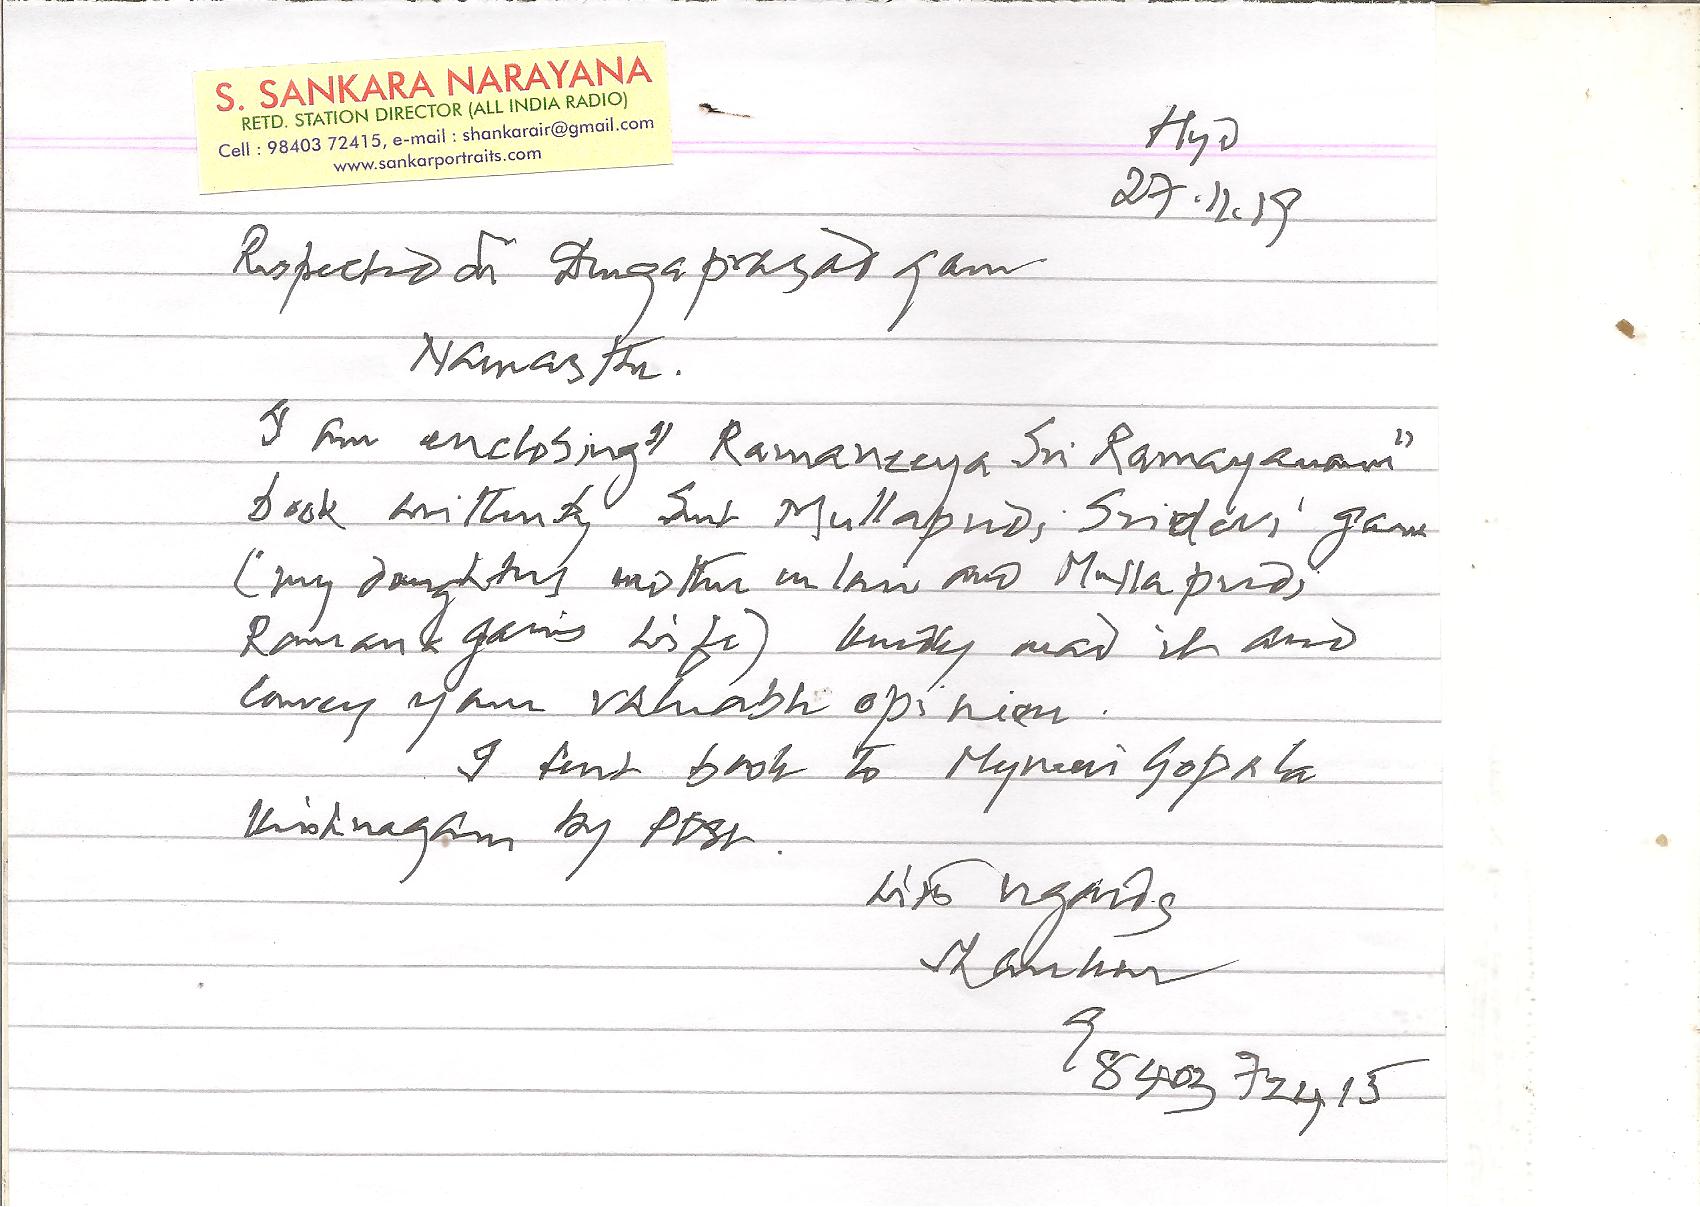 S. SANKARA NARAYANA
RETD. STATION DIRECTOR (ALL INDIA RADIO)
Cell : 98403 72415, e-mail : shankarair@gmail.com
www.sankarportraits.com
Hyd
27.11.19
Respected Sri Durgaprasad garu
Namasthe.
I am enclosing "Ramaneeya Sri Ramayanam"
book written by Smt Mullapudi Sridevi garu
(my daughters mother in law and Mullapudi
Ramana garis wife) kindly read it and
convey your valuable opinion.
I sent book to Myneni Gopala
Krishnagaru by post.
With regards
Shankar
98403 72415